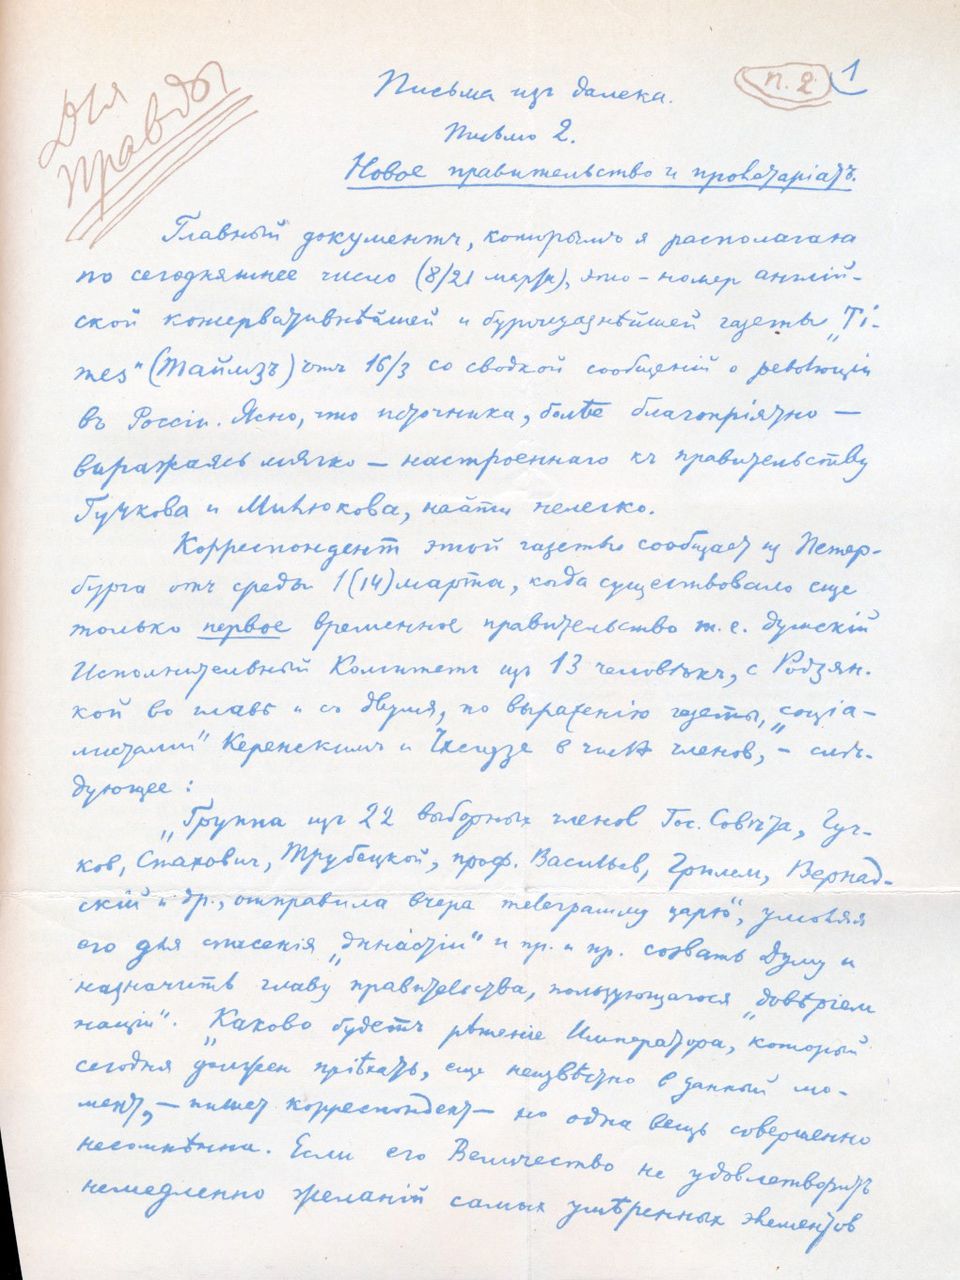 Для
Правды
п. 2.
1
Письма изъ далека.
Письмо 2.
Новое правительство и пролетаріатъ.
Главный документъ, которымъ я располагаю
по сегодняшнее число (8/21 марта), это – номер англій-
ской консервативнѣйшей и буржуазнѣйшей газеты „Ti-
mes“ (Таймзъ) отъ 16/3 со сводкой сообщеній о революціи
въ Россіи. Ясно, что источника, болѣе благопріятно –
выражаясь мягко – настроеннаго къ правительству
Гучкова и Милюкова, найти нелегко.
Корреспондент этой газеты сообщает из Петер-
бурга отъ среды 1 (14) марта, когда существовало еще
только первое временное правительство т. е. думскій
Исполнительный Комитетъ изъ 13 человѣкъ, с Родзян-
кой во главѣ и съ двумя, по выраженію газеты, „соціа-
листами“ Керенскимъ и Чхеидзе в числѣ членов, – слѣ-
дующее:
„Группа изъ 22 выборных членов Гос. Совѣта, Гуч-
ков, Стахович, Трубецкой, проф. Васильев, Гримм, Вернад-
скій и др., отправила вчера телеграмму царю“, умоляя
его для спасенія „династіи“ и пр. и пр. созвать Думу и
назначить главу правительства, пользующагося „довѣріем
націи“. „Каково будетъ рѣшеніе Императора, который
сегодня должен пріѣхать, еще неизвѣстно в данный мо-
мент, – пишет корреспондент – но одна вещь совершенно
несомнѣнна. Если его Величество не удовлетворитъ
немедленно желаній самых умѣренных элементов